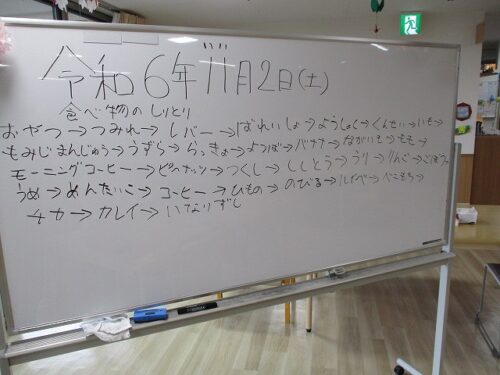 令和6年11月2日(土)
食べ物のしりとり
おやつ→つみれ→レバー→ばれいしょ→ようしょく→くんせい→いも→
もみじまんじゅう→うずら→らっきょ→ →バナナ→ながいも→もも→
モーニングコーヒー→ピーナッツ→つくし→ししとう→うり→りんご→ごぼう→
うめ→めんたいこ→コーヒー→ひもの→のびる→ルイベ→べこもち→
チカ→カレイ→いなりずし